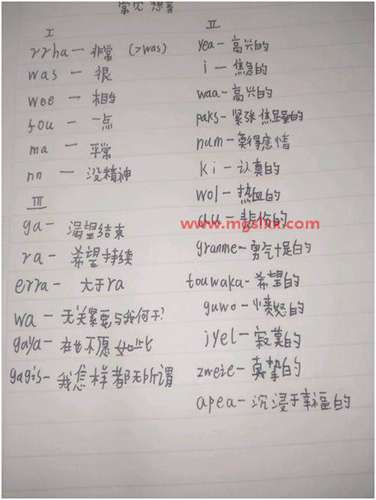 常见想音
I
rrha — 非常 (>was)
was — 很
wee — 相当
fou — 一点
ma — 平常
nn — 没精神
III
ga — 渴望结束
ra — 希望持续
erra — 大于ra
wa — 无关紧要与我何干?
gaya — 在也不愿如此
gagis — 我怎样都无所谓
II
yea — 高兴的
i — 焦急的
waa — 高兴的
paks — 紧张焦虑的
num — 莫得感情
ki — 认真的
wol — 热血的
chu — 悲伤的
granme — 勇气十足的
touwaka — 希望的
guwo — 愤怒的
iyel — 寂寞的
zweie — 真挚的
apea — 沉浸于幸福的
www.mgslxx.com